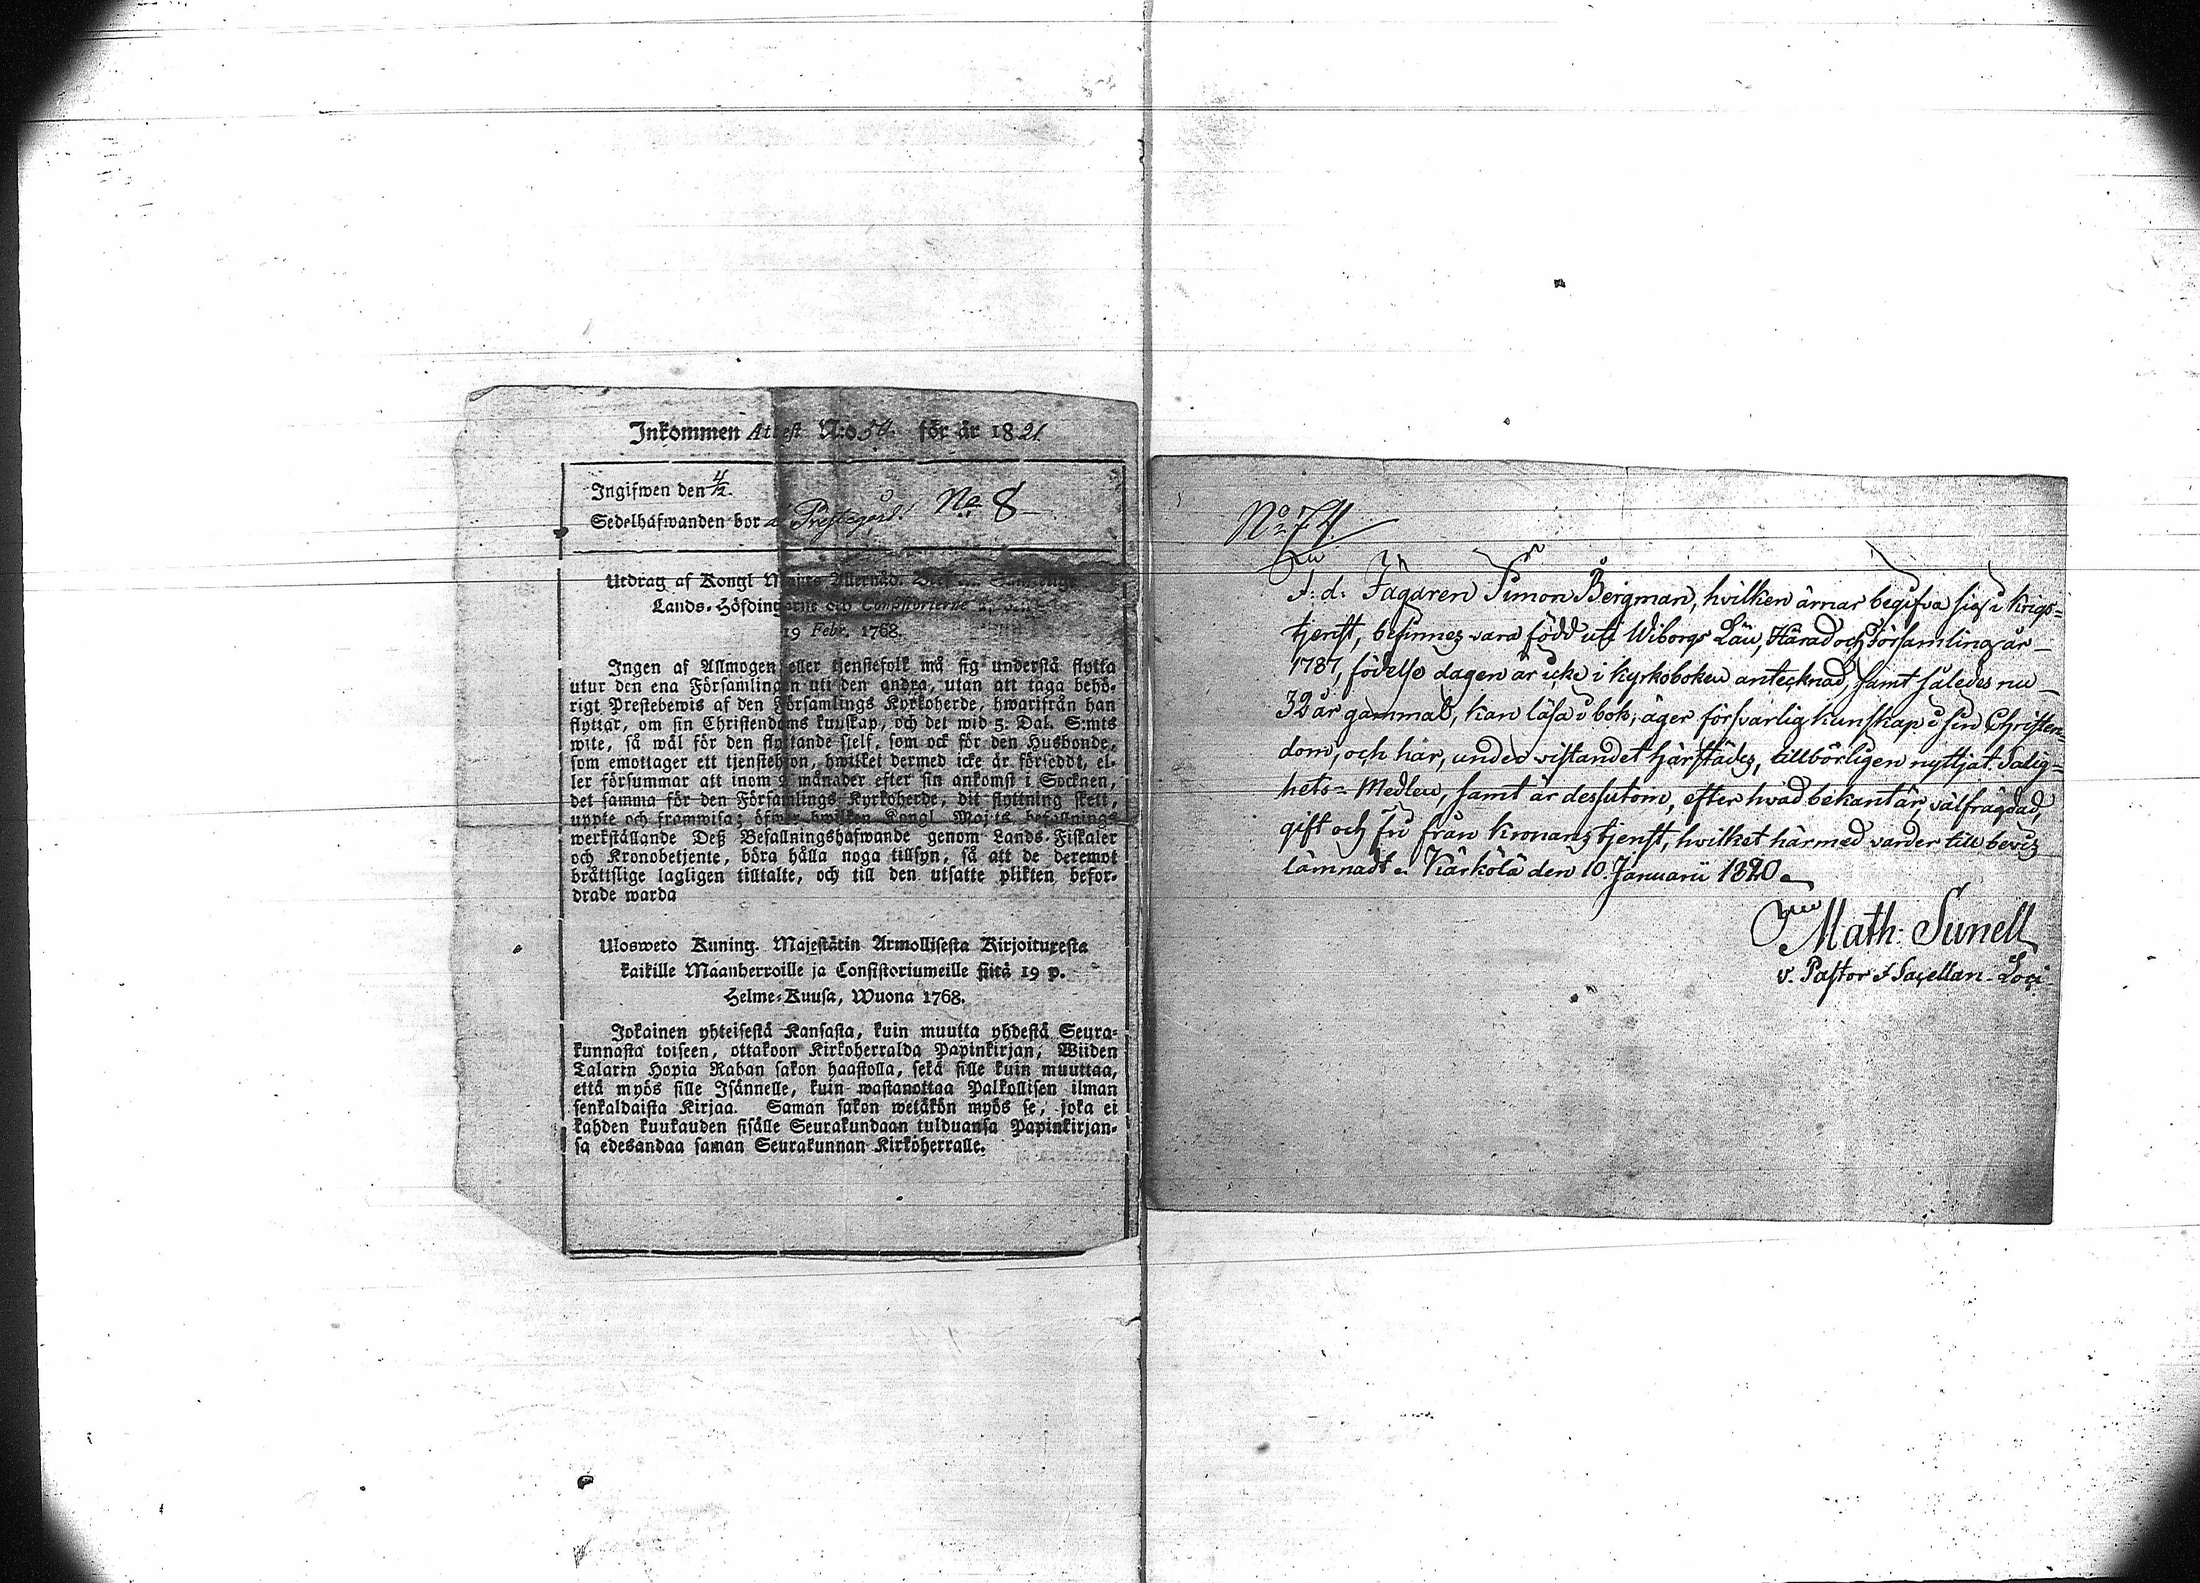 Inkommen Attest N:o 50. för år 1821.
Ingifwen den 4/2.
Sedelhafwanden bor å Prestegård. No 8
Utdrag af Kongl Maj:ts Allernåd.
Lands-Höfdingarne och Consistorierne
19 Febr. 1768.
Ingen af Allmogen eller tjenstefolk må sig understå flytta
utur den ena Församlingen uti den andra, utan att taga behö-
rigt Prestebewis af den Församlings Kyrkoherde, hwarifrån han
flyttar, om sin Christendoms kunskap, och det wid 5. Dal. S:mts
wite, så wäl för den flyttande sjelf, som ock för den Husbonde,
som emottager ett tjenstehjon, hwilket dermed icke är försedt, el-
ler försummar att inom 2 månader efter sin ankomst i Socknen,
det samma för den Församlings Kyrkoherde, dit flyttning skett,
uppte och framwisa; öfwer hwilken Kongl Maj:ts befallnings
werkställande Deß Befallningshafwande genom Lands-Fiskaler
och Kronobetjente, böra hålla noga tillsyn, så att de deremot
bråttslige lagligen tilltalte, och till den utsatte plikten befor-
drade warda
Ulosweto Kuning. Majestätin Armollisesta Kirjoituxesta
kaikille Maanherroille ja Consistoriumeille siitä 19 p.
Helme-Kuusa, Wuona 1768.
Jokainen yhteisestä Kansasta, kuin muutta yhdestä Seura-
kunnasta toiseen, ottakoon Kirkoherralda Papinkirjan, Wiiden
Talarin Hopia Rahan sakon haastolla, sekä sille kuin muuttaa,
että myös sille Isännelle, kuin wastanottaa Palkollisen ilman
senkaldaista Kirjaa. Saman sakon wetäkön myös se, joka ei
kahden kuukauden sisälle Seurakundaan tulduansa Papinkirjan-
sa edesandaa saman Seurakunnan Kirkoherralle.
No 74.
F: d: Jägaren Simon Bergman, hvilken ärnar begifva sig i krigs-
tjenst, befinnes vara född uti Wiborgs Län, Härad och Församling år
1787, födelse dagen är icke i kyrkoboken antecknad, samt således nu
32 år gammal, kan läsa i bok, äger försvarlig kunskap i sin Christen-
dom, och här, under vistandet härstädes, tillbörligen nyttjat Salig-
hets-Medlen, samt är dessutom, efter hvad bekant är, välfrägdad,
gift och fri från Kronans tjenst, hvilket härmed varder till bevis
lämnadt. Kärkölä den 10. Januarii 1820.
Math. Sunell
v. Pastor & Sacellan. Loci